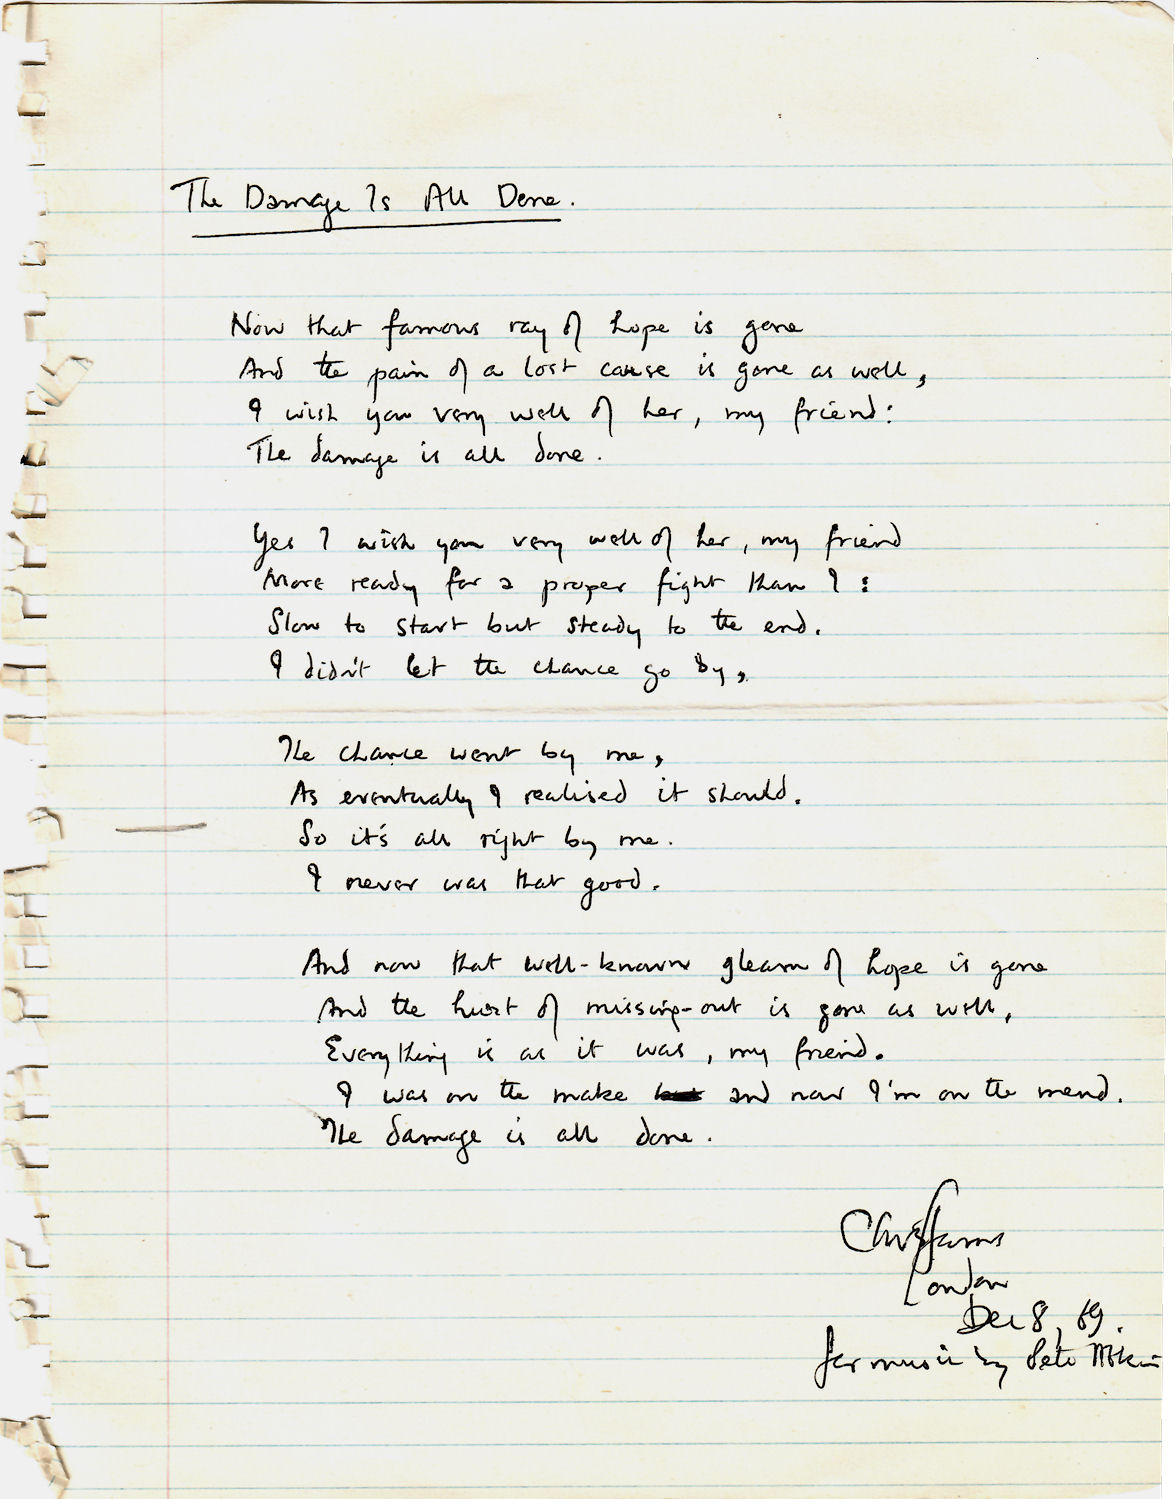 The Damage Is All Done.
Now that famous ray of hope is gone
And the pain of a lost cause is gone as well,
I wish you very well of her, my friend:
The damage is all done.
Yes I wish you very well of her, my friend
More ready for a proper fight than I:
Slow to start but steady to the end.
I didn't let the chance go by,
The chance went by me,
As eventually I realised it should.
So it's all right by me.
I never was that good.
And now that well-known gleam of hope is gone
And the hurt of missing-out is gone as well,
Everything is as it was, my friend.
I was on the make and now I'm on the mend.
The damage is all done.
London
Dec 8, 69.
for music by Pete Atkin